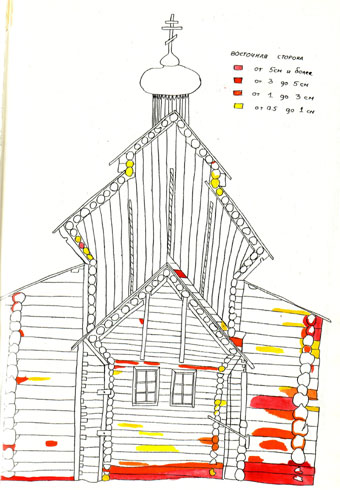 ВОСТОЧНАЯ СТОРОНА
от 5 см и более
от 3 до 5 см
от 1 до 3 см
от 0.5 до 1 см